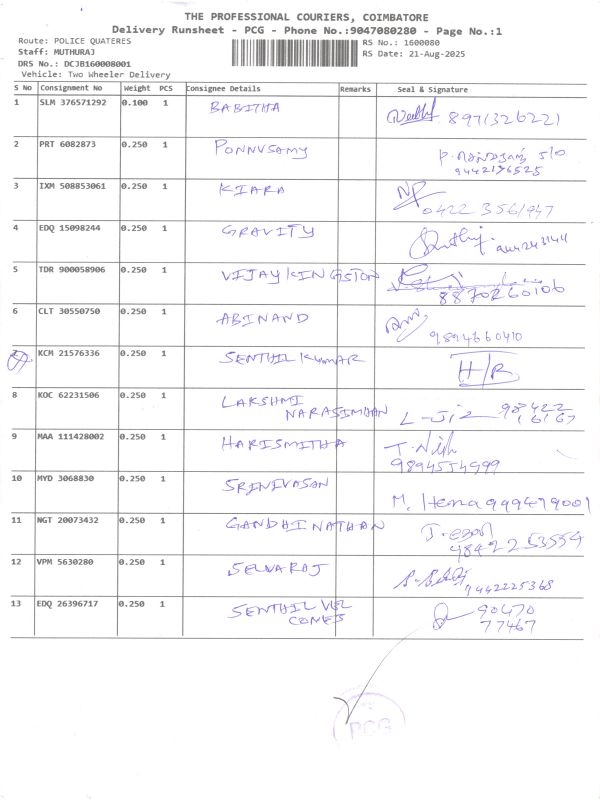 THE PROFESSIONAL COURIERS, COIMBATORE
Delivery Runsheet - PCG - Phone No.:9047080280 - Page No.:1
Route: POLICE QUATERES
RS No.: 1600080
Staff: MUTHURAJ
RS Date: 21-Aug-2025
DRS No.: DCJB160008001
Vehicle: Two Wheeler Delivery
S No Consignment No Weight PCS Consignee Details Remarks Seal & Signature
1 SLM 376571292 0.100 1 BABITHA 8971326221
2 PRT 6082873 0.250 1 PONNUSAMY
9442176525
3 IXM 508853061 0.250 1 KIARA
0422 3561947
4 EDQ 15098244 0.250 1 GRAVITY
5 TDR 900058906 0.250 1 VIJAY KINGSTON
8870260106
6 CLT 30550750 0.250 1 ABINAND
9894660410
7 KCM 21576336 0.250 1 SENTHIL KUMAR H/R
8 KOC 62231506 0.250 1 LAKSHMI
NARASIMHAN 98422
16167
9 MAA 111428002 0.250 1 HARISMITHA
9894554999
10 MYD 3068830 0.250 1 SRINIVASAN
M. Hema 999479001
11 NGT 20073432 0.250 1 GANDHINATHAN
9842253554
12 VPM 5630280 0.250 1 SELVARAJ
9442225368
13 EDQ 26396717 0.250 1 SENTHIL VEL 90470
CONES 77467
PCG